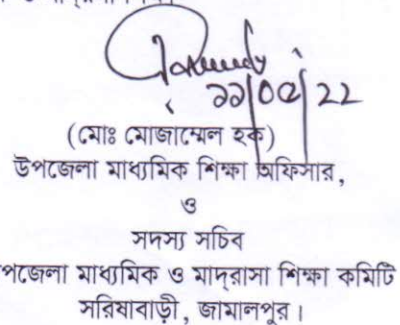 ২২/০৫/22
(মোঃ মোজাম্মেল হক)
উপজেলা মাধ্যমিক শিক্ষা অফিসার,
ও
সদস্য সচিব
পজেলা মাধ্যমিক ও মাদ্রাসা শিক্ষা কমিটি
সরিষাবাড়ী, জামালপুর।